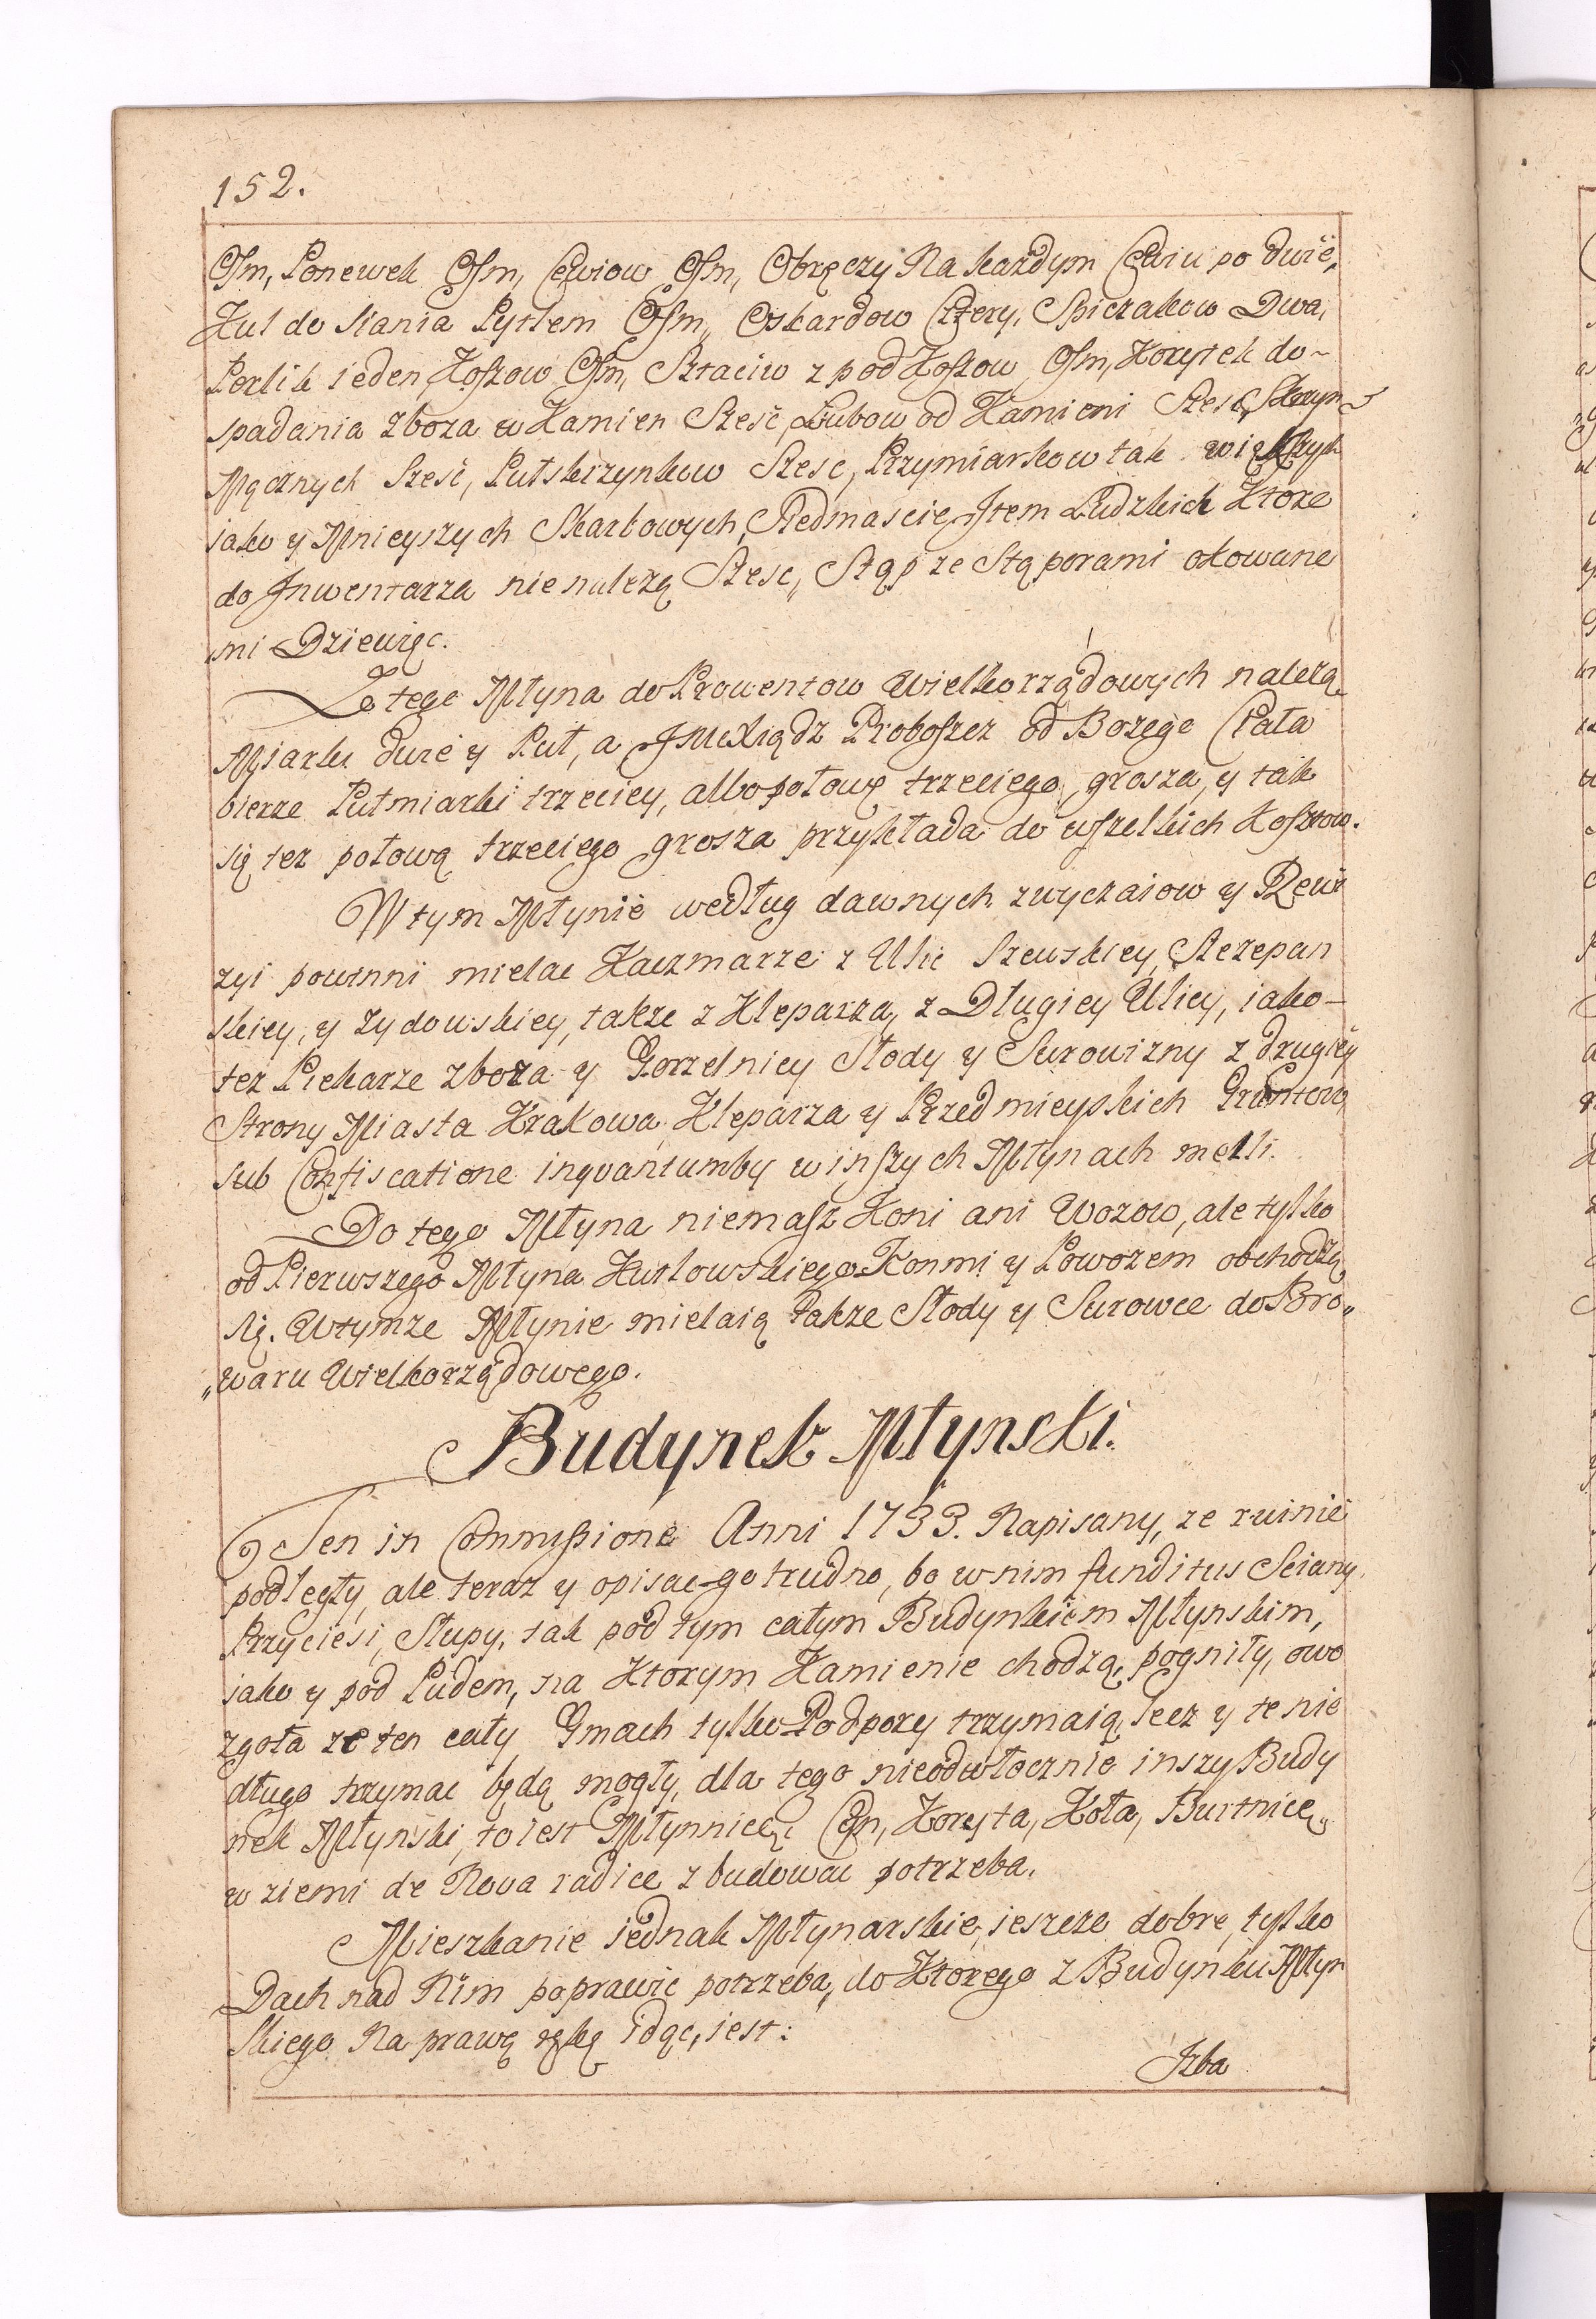 152.
Osm, Ponewek Osm, Cewiow Osm, Obręczy Na każdym Cewiu po dwie,
Kul do Siania Pytlem Osm, Oskardow Cztery, Spiczakow Dwa,
Perlik ieden, Koszow Osm, Sztaciw z pod Koszow Osm, Korytek do-
spadania zboza w Kamien Szesć, Łubow od Kamieni Szesc, Skrzyn
Mącznych Szesć, Pułskrzynkow Szesc, Przymiarkow tak większych
iako y Mnieyszych Skarbowych, Siedmascie, Item Ludzkich Ktore
do Inwentarza nie nalezą Szesc, Stąp ze Stąporami okowane
mi Dziewięc.
Z tego Młyna do Prowentow Wielkorządowych nalezą
Miarki dwie y Puł, a JMć Xiądz Proboszcz od Bozego Ciała
bierze Pułmiarki trzeciey, albo połowę trzeciego grosza, y tak
się tez połową trzeciego grosza przykłada do wszelkich Kosztow.
W tym Młynie według dawnych zwyczaiow y Rewi
zyi powinni mielac Kaczmarze z Ulic Szewskiey, Szczepan
skiey, y Zydowskiey, takze z Kleparza, z Długiey Ulicy, iako-
tez Piekarze zboza y Gorzelnicy Słody y Surowizny z drugiey
Strony Miasta Krakowa, Kleparza y Przedmieyskich Gruntow,
sub Confiscatione inquantumby w inszych Młynach melli.
Do tego Młyna niemasz Koni ani Wozow, ale tylko
od Pierwszego Młyna Kutlowskiego Konmi y Powozem obchodzą
się. W tymze Młynie mielaią takze Słody y Surowce do Bro„
„waru Wielkorządowego.
Budynek Młynski.
Ten in Commissione Anni 1733. Napisany, ze ruinie
podległy, ale teraz y opisac go trudno, bo w nim funditus Sciany,
Przyciesi, Słupy, tak pod tym całym Budynkiem Młynskim,
iako y pod Pudem, na Ktorym Kamienie chodzą, pogniły, owo
zgoła ze ten cały Gmach tylko Podpory trzymaią, lecz y te nie
długo trzymac będą mogły, dla tego nieodwłocznie inszy Budy
nek Młynski, to iest Młynnicę, Koryta, Koła, Burtnice,
w ziemi de Nova radice zbudowac potrzeba.
Mieszkanie iednak Młynarskie, ieszcze dobre, tylko
Dach nad Nim poprawic potrzeba, do Ktorego z Budynku Młyn
skiego Na prawą rękę idąc, iest:
Izba